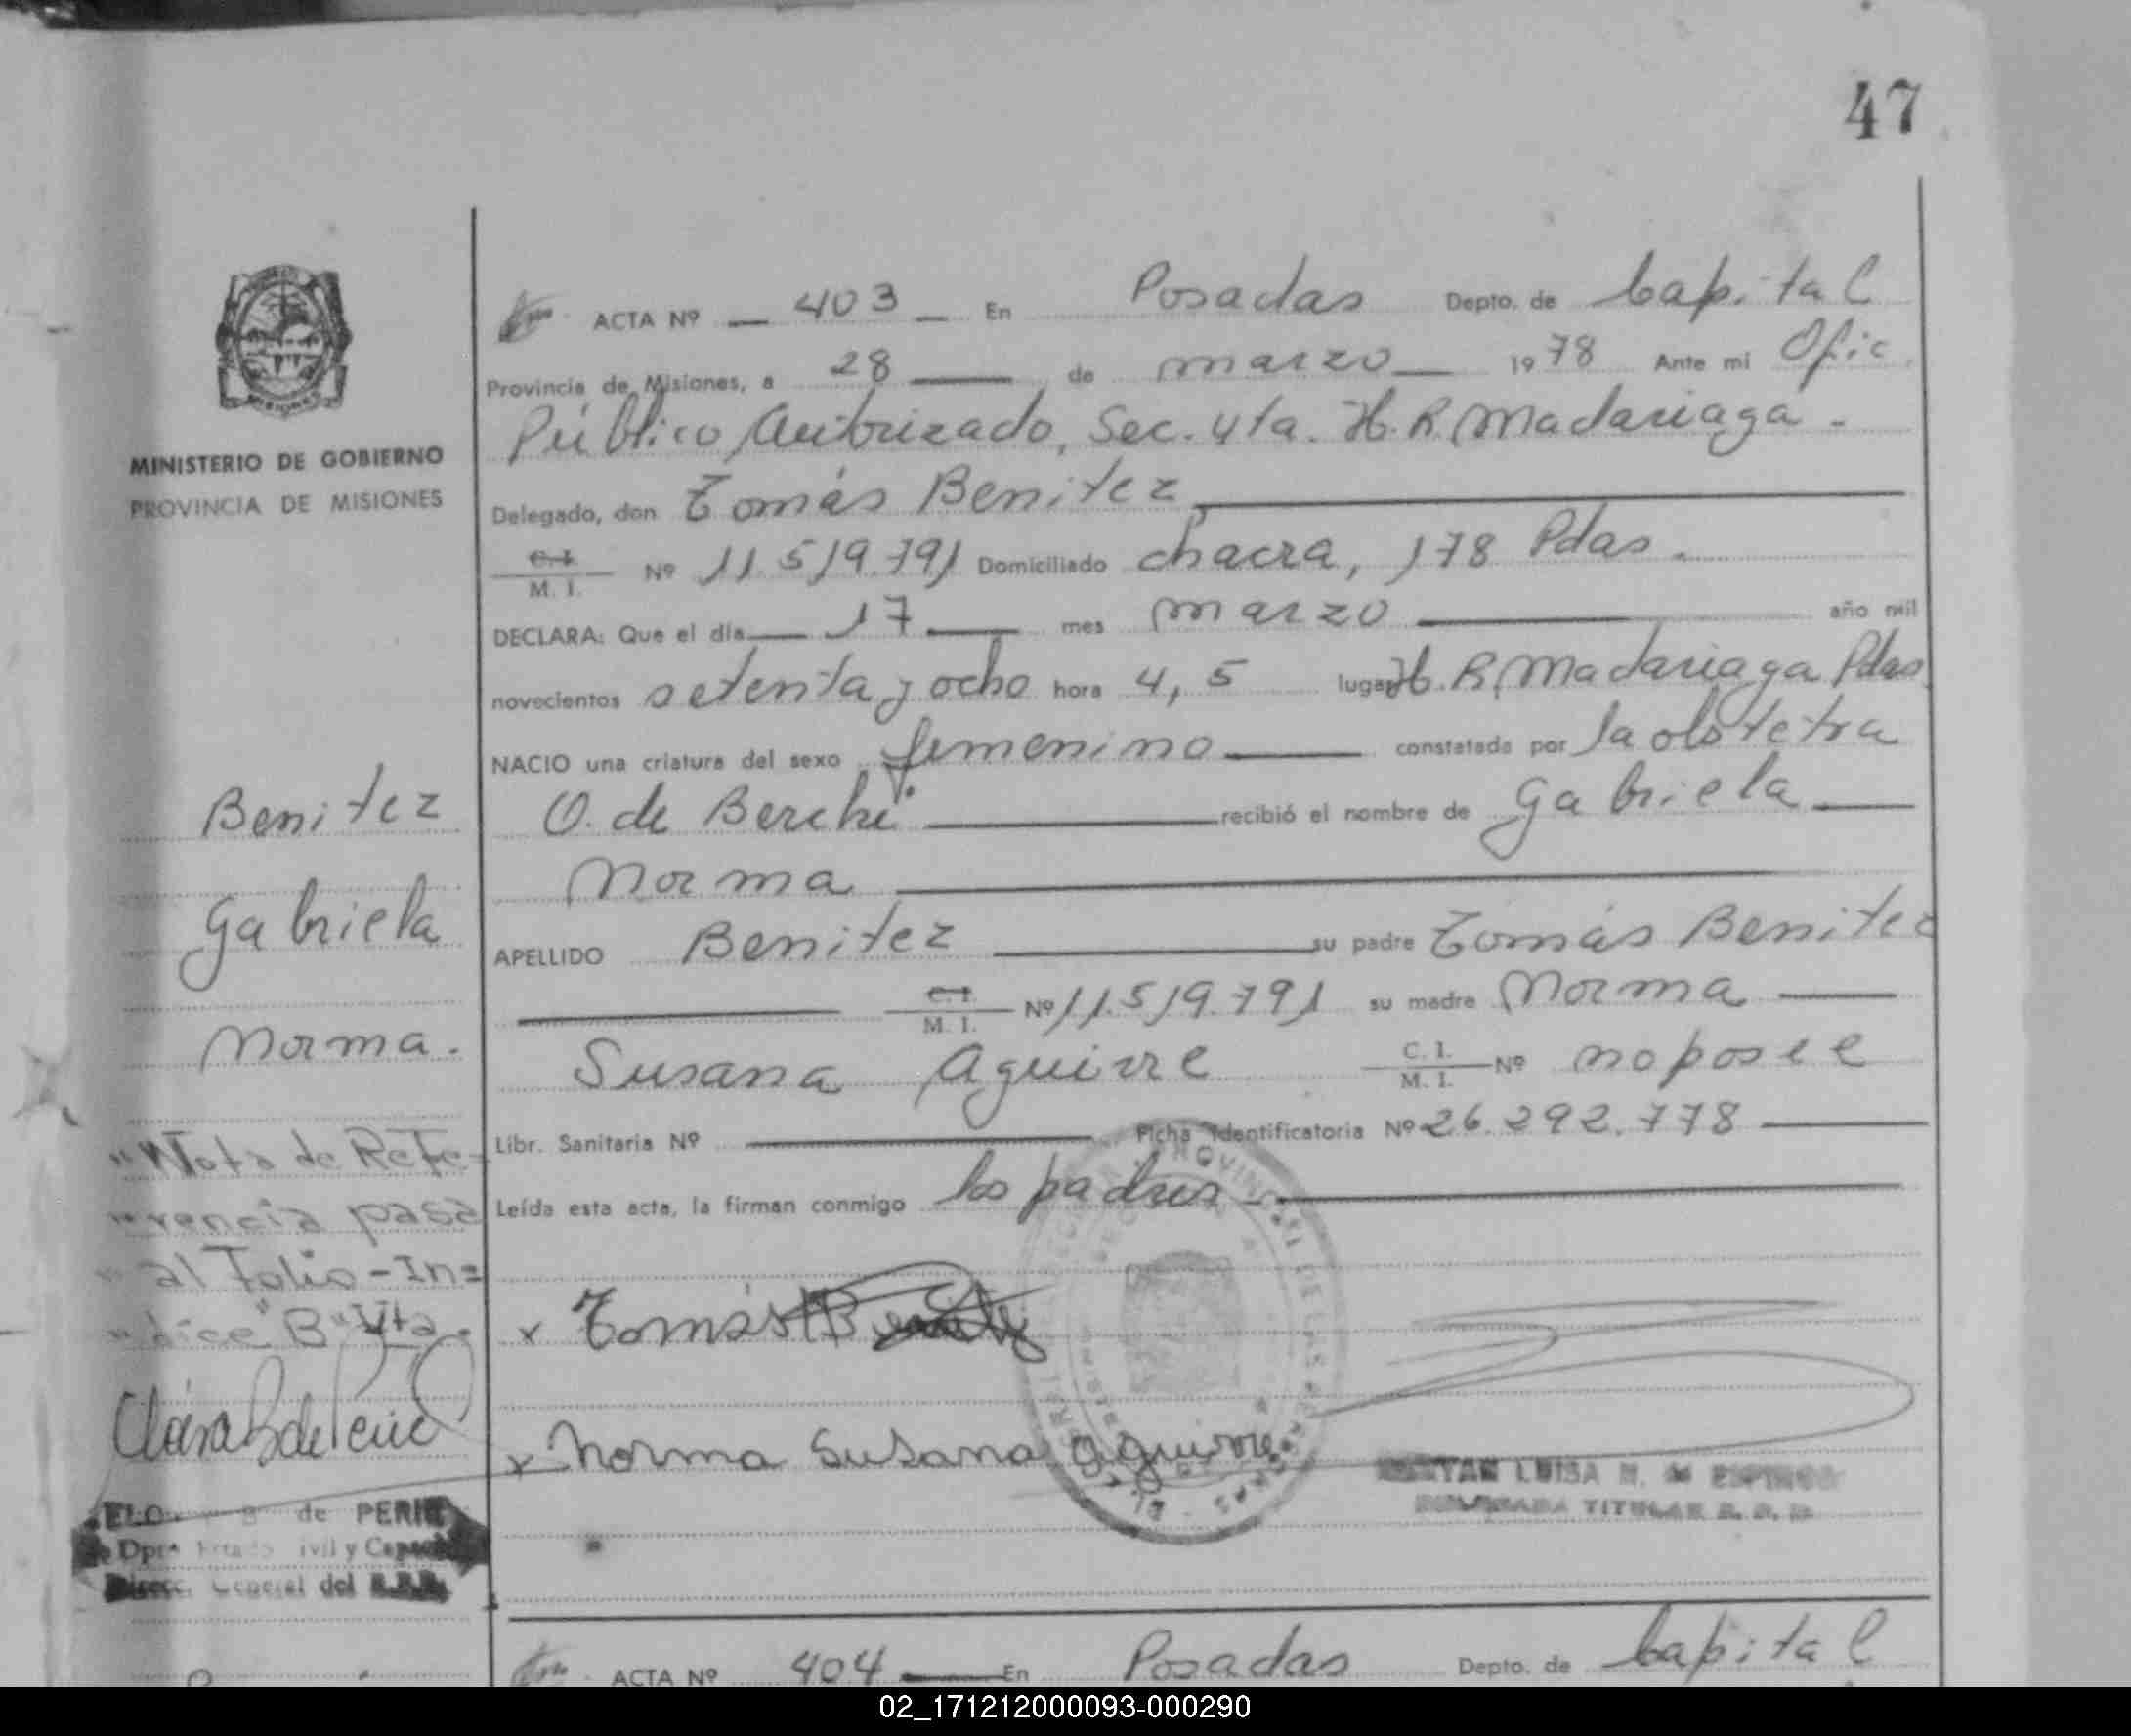 47
ACTA Nº 403 En Posadas Depto. de Capital
Provincia de Misiones, a 28 de marzo 1978 Ante mi Ofic
Público Autorizado, Sec. 4ta. H. R. Madariaga -
MINISTERIO DE GOBIERNO
PROVINCIA DE MISIONES
Delegado, don Tomás Benitez
C. I.
M. I. Nº 11.519.791 Domiciliado chacra, 178 Pdas.
DECLARA: Que el día 17 mes marzo año mil
novecientos setenta y ocho hora 4,5 lugar H. R. Madariaga Pdas
NACIO una criatura del sexo femenino constatada por la obstetra
O. de Berchi recibió el nombre de Gabriela
Norma
APELLIDO Benitez su padre Tomás Benitez
C. I.
M. I. Nº 11.519.791 su madre Norma
Susana Aguirre C. I.
M. I. Nº no posee
Libr. Sanitaria Nº Ficha Identificatoria Nº 26.292.778
Leída esta acta, la firman conmigo los padres
x Tomás Benitez
x Norma Susana Aguirre
LUISA N. de ESPINOSA
DELEGADA TITULAR
Benitez
Gabriela
Norma.
"Nota de Refe-
"rencia pasa
"al Folio-In=
"dice "B" Vta.
de PERIE
Dpto Estado Civil y Capac
Direcc. General del
ACTA Nº 404 En Posadas Depto. de Capital
02_171212000093-000290